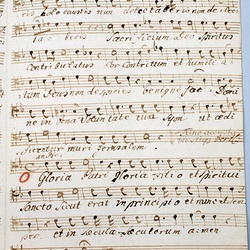 ris holocaustis non delectaberis non de lec
ta beris Sacri ficium Deo Spiritus
Contribulatus Cor Contritum et humilia
tum Deus non despicies benigne fac Domi
ne in bona Voluntate tua Syon ut ædi
ficentur muri Jerusalem.
andte.
Gloria Patri Gloria Filio et Spiritui
Sancto Sicut erat in principio et nunc et Sem
per et in sæcula sæculorum amen